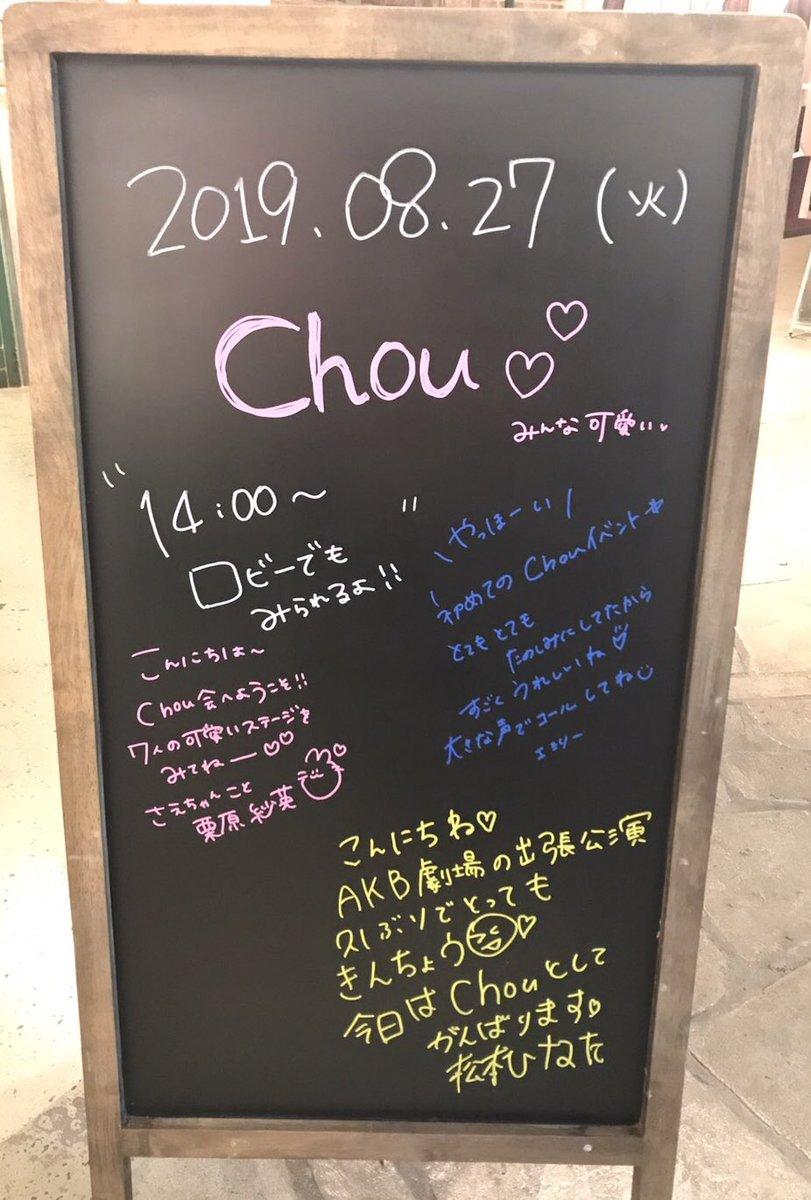 2019.08.27 (火)
Chou♡♡
みんな可愛い♥
"14:00〜"
ロビーでも
みられるよ!!
\やっほーい/
初めてのChouイベント
とてもとても
たのしみにしてたから
すごくうれしいね♡
大きな声でコールしてね
こんにちは〜
Chou会へようこそ!!
7人の可愛いステージを
みてねー♡♡
さえちゃんこと
栗原紗英
こんにちわ♡
AKB劇場の出張公演
久しぶりでとっても
きんちょう♡
今日はChouとして
がんばります♡
松本ひなた